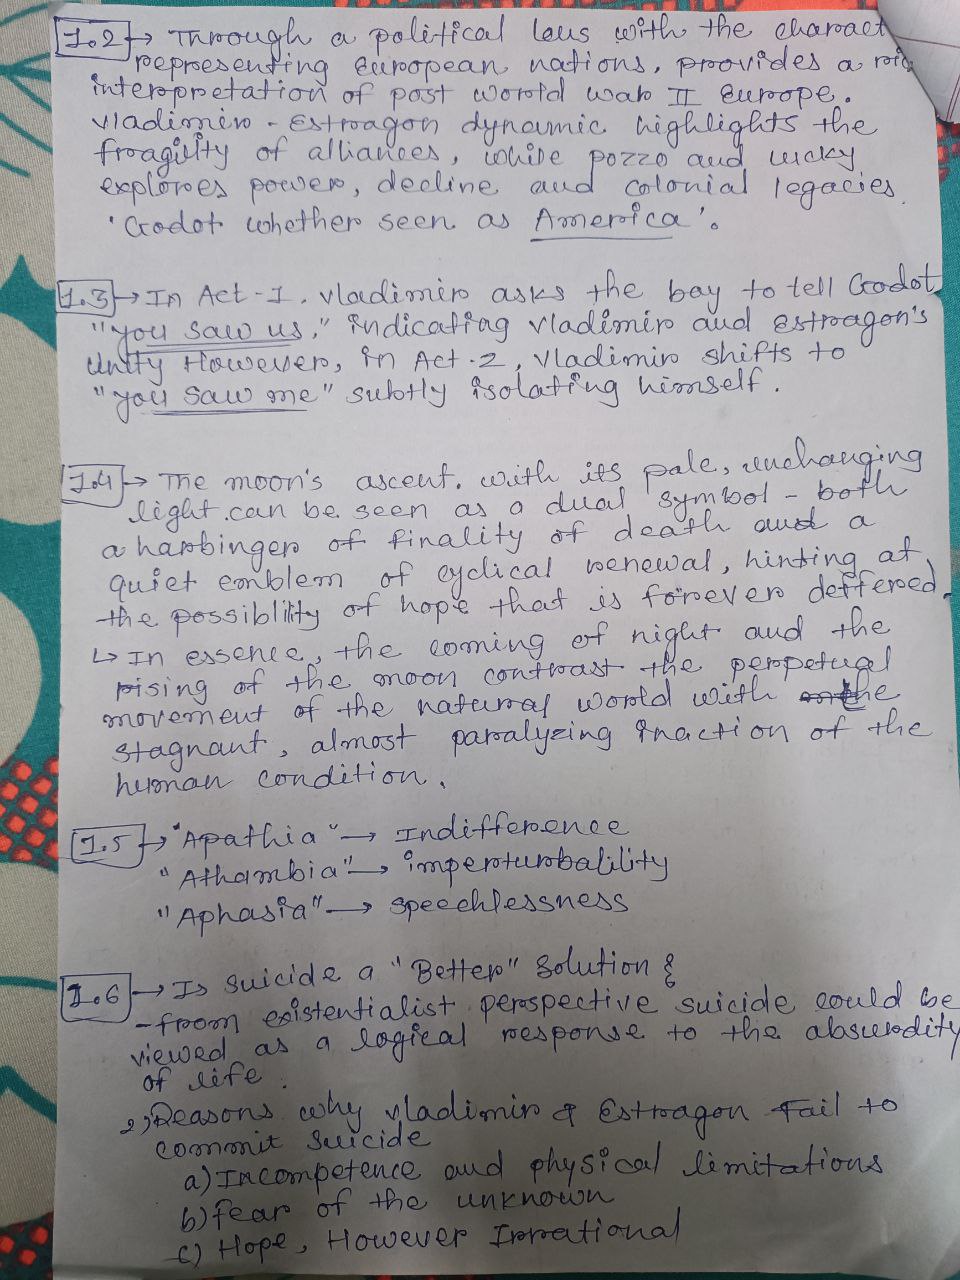 1.2 → Through a political lens with the charact
representing European nations, provides a ric
interpretation of post world war II Europe.
vladimir - Estragon dynamic highlights the
fragility of alliances, while pozzo and lucky
explores power, decline and colonial legacies.
'Godot whether seen as America'.
1.3 → In Act-I, vladimir asks the boy to tell Godot
"you saw us," indicating vladimir and Estragon's
unity However, in Act-2, vladimir shifts to
"you saw me" subtly isolating himself.
1.4 → The moon's ascent. with its pale, unchanging
light.can be seen as a dual symbol - both
a harbinger of finality of death and a
quiet emblem of cyclical renewal, hinting at
the possiblility of hope that is forever deffered.
↳ In essence, the coming of night and the
rising of the moon contrast the perpetual
movement of the natural world with the
stagnant, almost paralyzing inaction of the
human condition.
1.5 → "Apathia" → Indifference
"Athambia" → imperturbability
"Aphasia" → speechlessness
1.6 → Is suicide a "Better" Solution ?
- from existentialist perspective suicide could be
viewed as a logical response to the absurdity
of life.
2) Reasons why vladimir & Estragon fail to
commit suicide
a) Incompetence and physical limitations
b) fear of the unknown
c) Hope, However Irrational